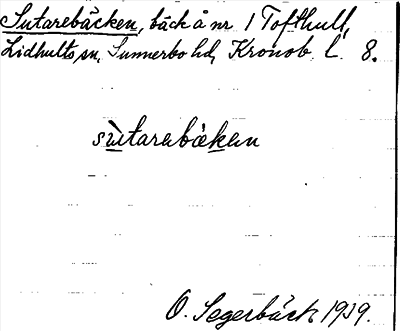 Sutarebäcken, bäck å nr 1 Tofthult,
Lidhults sn, Sunnerbo hd, Kronob. l. 8.
sùtarebäken
O. Segerbäck 1919.